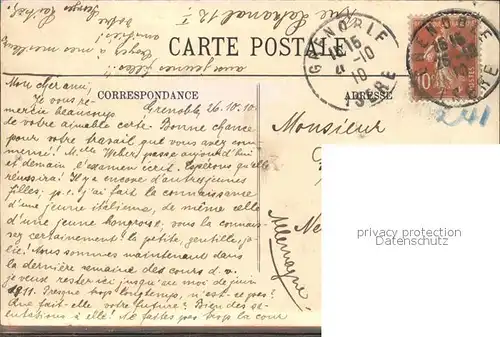 CARTE POSTALE
CORRESPONDANCE
ADRESSE
GRENOBLE
ISERE
10
241
Grenoble, 26.10.10.
Mon cher ami,
Je vous re-
mercie beaucoup
de votre aimable carte. Bonne chance
pour votre travail que vous avez com-
mencé! M. de Weber passe aujourd'hui
et demain l'examen écrit. Espérons qu'elle
réussira! Il y a encore d'autres jeunes
filles; p.e. j'ai fait la connaissance
d'une jeune italienne, de même celle
d'une jeune hongroise, vous la connais-
sez certainement: la petite, gentille, jo-
lie! Nous sommes maintenant dans
la dernière semaine des cours d. v.
Je veux rester ici jusqu'au moi de juin
1911. Presque trop longtemps, n'est-ce pas?
Que fait-elle votre future? Bien des sa-
lutations à elle! Ne faites pas trop la cour
aux jeunes filles!
Monsieur
Allemagne
privacy protection
Datenschutz